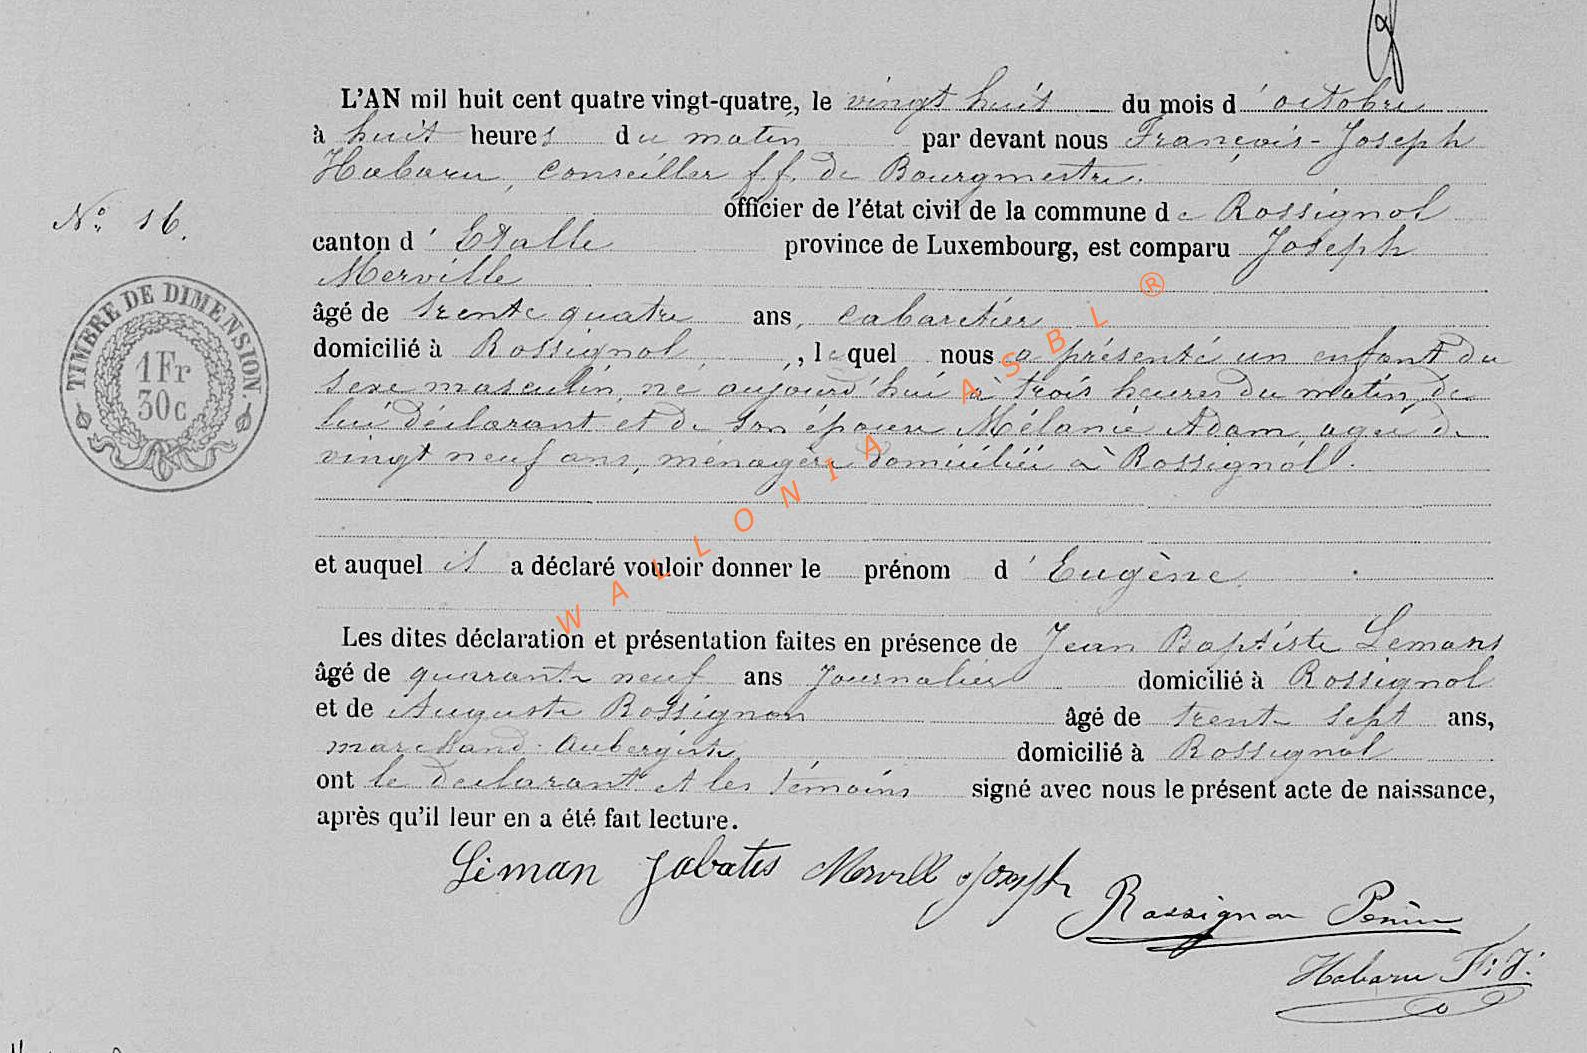 L'AN mil huit cent quatre vingt-quatre, le vingt huit du mois d'octobre
à huit heures du matin par devant nous François-Joseph
Habaru, Conseiller f.f. de Bourgmestre.
officier de l'état civil de la commune de Rossignol
N° 16.
canton d'Etalle province de Luxembourg, est comparu Joseph
Merville
âgé de trente quatre ans, cabaretier
domicilié à Rossignol, lequel nous a présenté un enfant du
sexe masculin, né aujourd'hui à trois heures du matin, de
lui déclarant et de son épouse Mélanie Adam, agée de
vingt neuf ans, ménagère domiciliée à Rossignol.
et auquel il a déclaré vouloir donner le prénom d'Eugène
Les dites déclaration et présentation faites en présence de Jean Baptiste Lemans
âgé de quarante neuf ans Journalier domicilié à Rossignol
et de Auguste Rossignon âgé de trente sept ans,
marchand-Aubergiste domicilié à Rossignol
ont le déclarant et les témoins signé avec nous le présent acte de naissance,
après qu'il leur en a été fait lecture.
Léman Jabatis Mervill Joseph
Rossignon
Habaru F:J:
TIMBRE DE DIMENSION.
1Fr
30c
WALLONIA ASBL ®